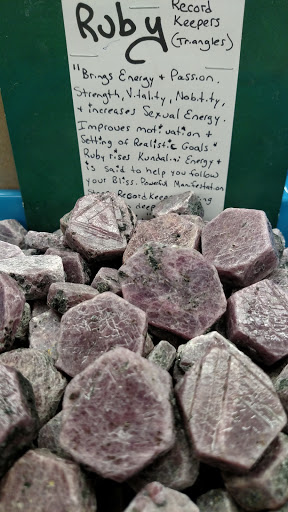 Ruby
Record
Keepers
(Triangles)
"Brings Energy + Passion.
Strength, Vitality, Nobility,
+ increases Sexual Energy.
Improves motivation +
Setting of Realistic Goals.
Ruby rises Kundalini Energy +
is said to help you follow
your Bliss. Powerful Manifestation
Record Kee
deep